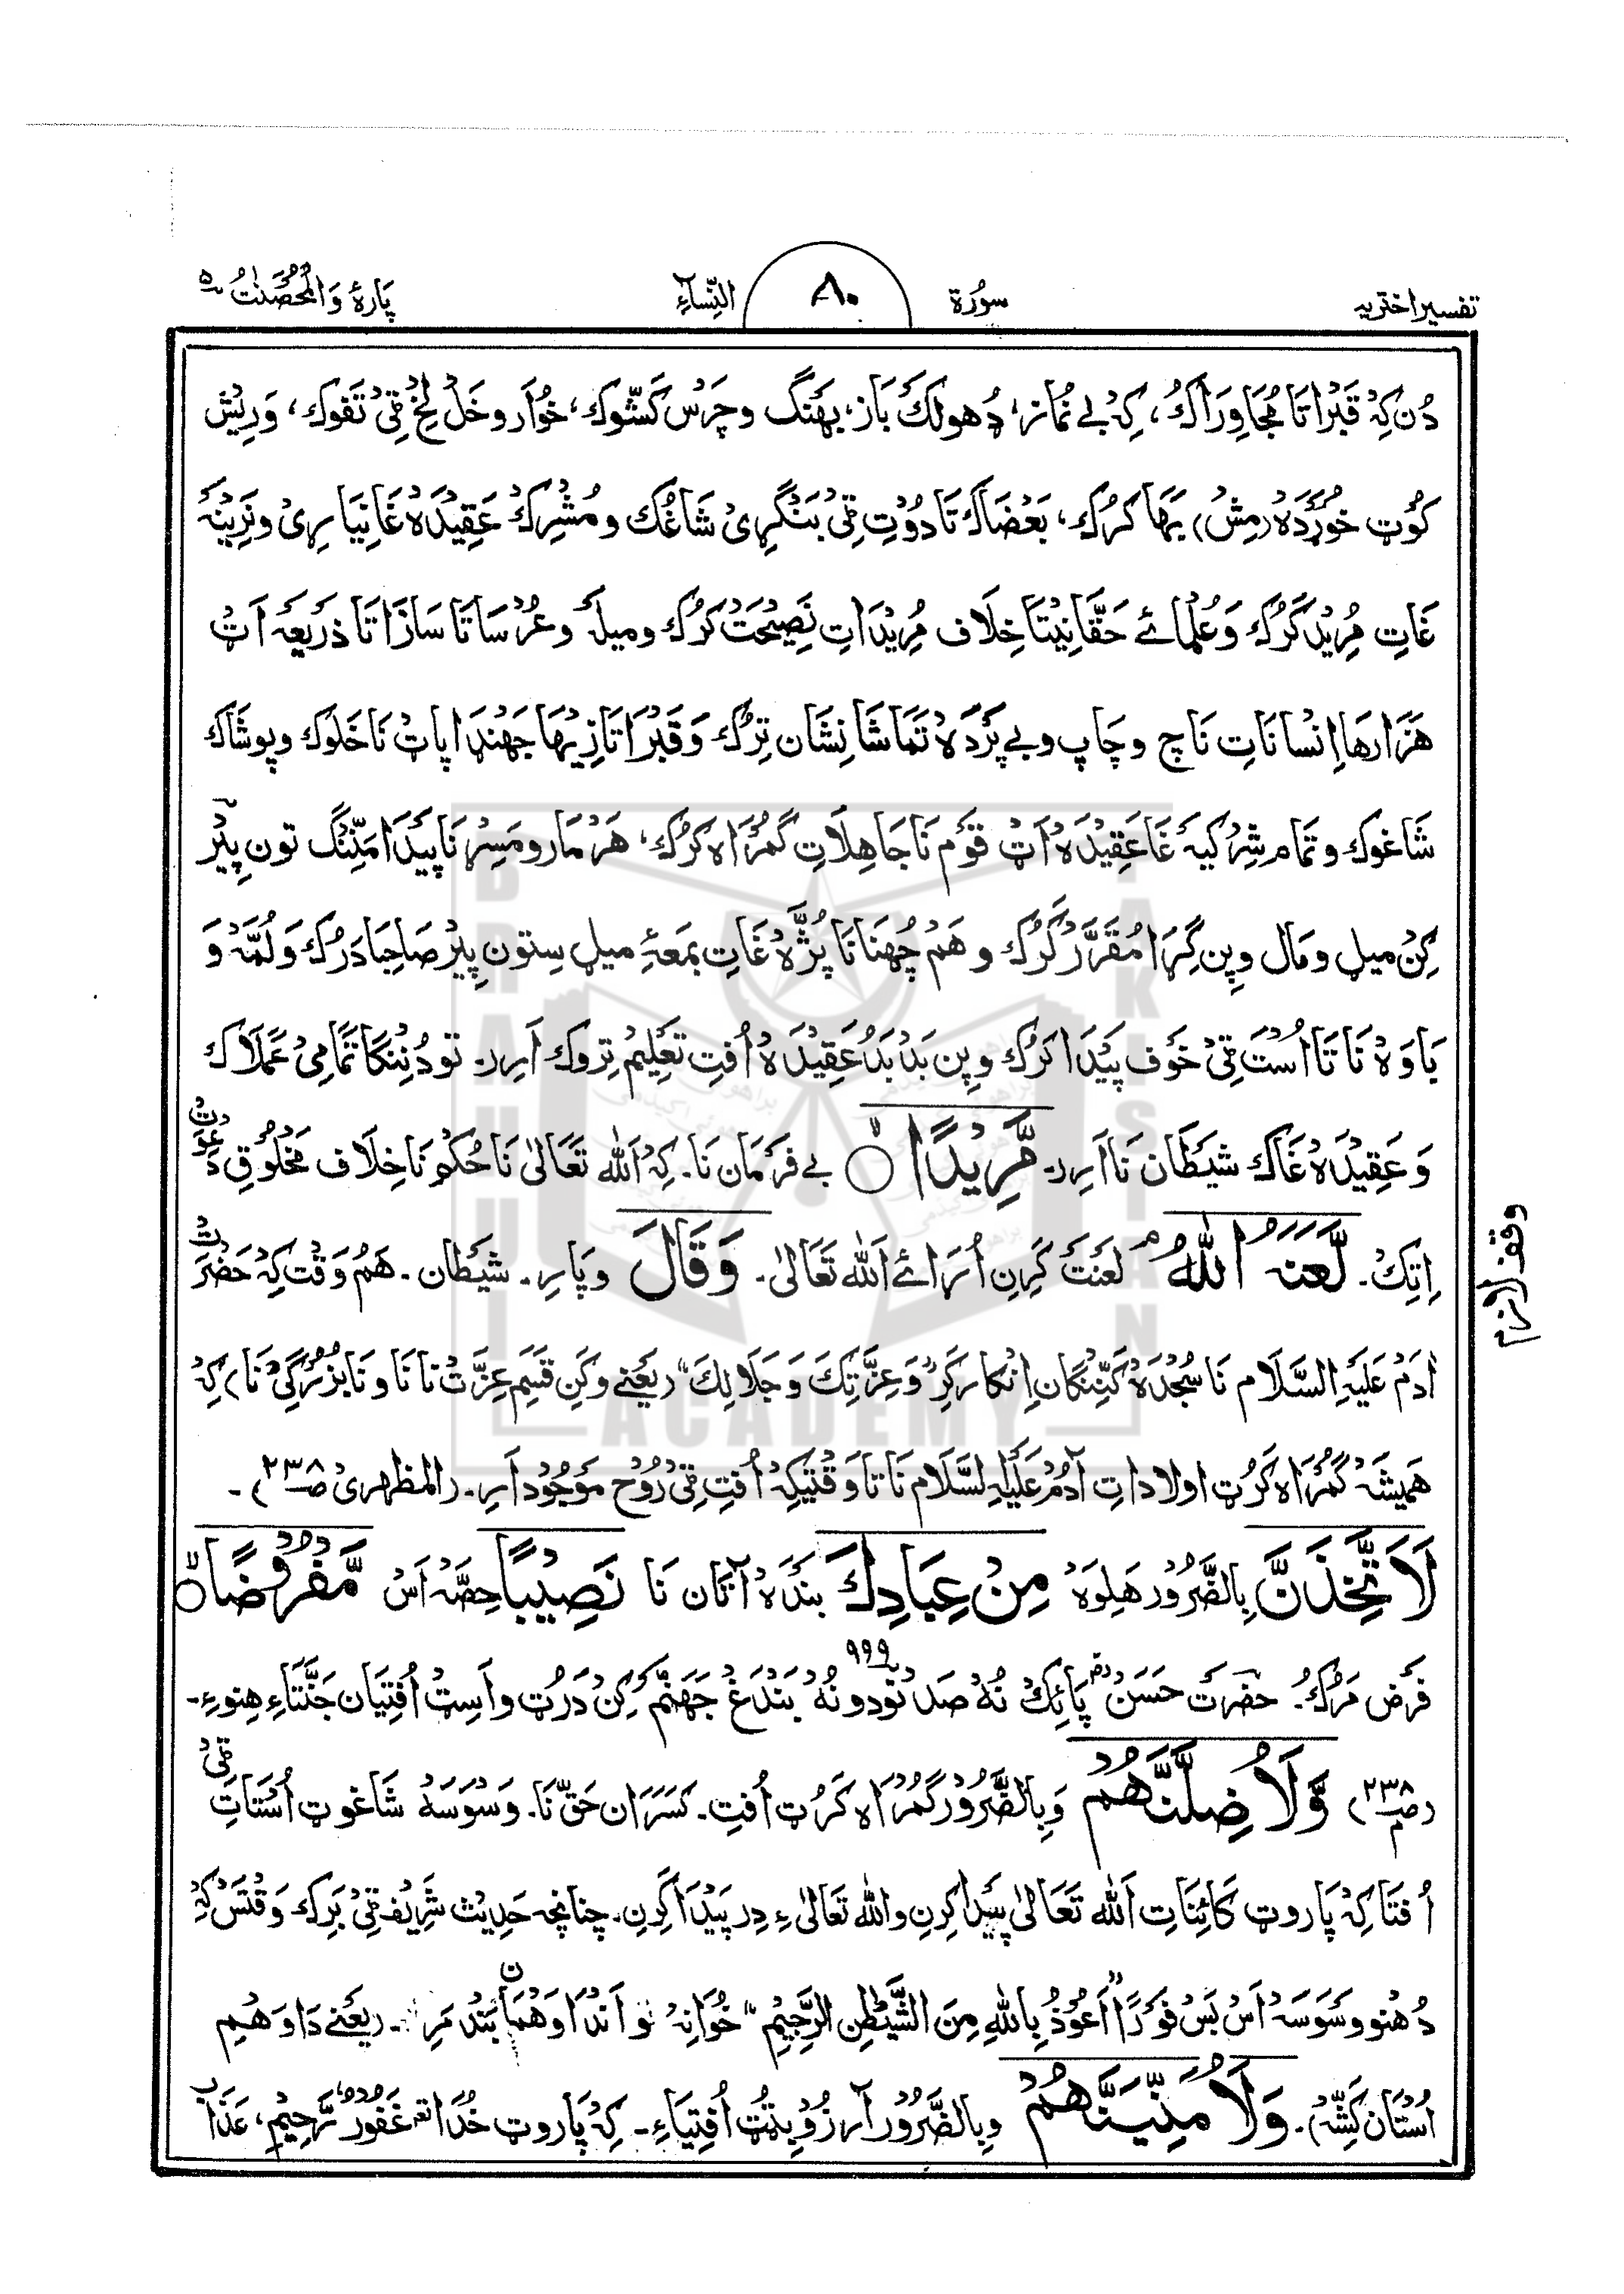 تفسیر اختریہ سورۃ ۸۰ النِّساء پارۂ وَالْمُحْصَنٰتُ ۵
دُن کِہْ قَبْرَاتَا مُجَاوِرَاکُ، کِہْ بے نُمَاز، دُھولَک بَاز، بھَنگ وچَرَسْ کَشّوک، خُوَار وخَلْ لِخْ ٹِیْ تَفوک، وَرِیْش
کُوْٹ خُوْرْدَہ (مِشْ) بَہَا کَرُک، بَعْضَاکْ تَا دُوْتِ ٹِیْ بَنْگَرِیْ شَاغُک ومُشْرِکْ عَقِیْدَہْ غَا نِیَارِیْ ونَرِیْنَہ
غَاتِ مُرِیْد کَرُک وَعُلَمَائے حَقَّانِیْتَا خِلَاف مُرِیْدَاتِ نَصِیْحَتْ کَرُک ومیلَہ وعُرْسَاتَا سَازَاتَا ذَرِیعَہ اَٹْ
ھَزَارھَا اِنْسَانَاتِ نَاچ وچَاپ وبے پَرْدَہْ تَمَاشَا نِشَان تِرُک وَقَبْرَاتَا زِیْہَا جَھَنْڈَا پَاٹْ نَا خَلوک وپوشَاک
شَاغوک وتَمَام شِرْکِیَہ غَا عَقِیْدَہْ اَٹْ قوْم نَا جَاھِلَاتِ گُمْرَاہ کَرُک، ھَرْ مَار ومَسِرْ نَا پَیْدَا مَنِّنْگ تون پِیْر
کِنْ میل ومَال وپِن گِرَا مُقَرَّرْ کَرُک وھَمْ چُھنَا نَا پُژَّہْ غَاتِ بَمَعۂ میل سِتون پِیْر صَاحِبَا دَرُک وَلُمَّہْ وَ
بَاوَہْ نَا تَا اُسْت ٹِیْ خَوْف پَیْدَا کَرُک وپِن بَدْ بَدُ عَقِیْدَہْ اُفتِ تَعْلِیْم تِروک اَرِر۔ تودُنِنْگَا تَمَامِیْ عَمَلَاک
وَعَقِیْدَہْ غَاک شَیْطَان نَا اَرِر۔ مَّرِیْدًا ۝ بے فَرْمَان نَا۔ کِہْ اَللّٰہ تَعَالٰی نَا حُکْم نَا خِلَاف مَخْلُوْقِ دَعْوَتْ
اِتِک۔ لَّعَنَہُ اللّٰہُ ۘ لَعْنَتْ کَرِنِ اُرَائے اَللّٰہ تَعَالٰی۔ وَقَالَ وپَارِ۔ شَیْطَان۔ ھَمْ وَقْت کِہْ حَضْرَتْ
وقف لازم
اٰدَمْ عَلَیْہِ السَّلَام نَا سُجْدَہْ کَنِّنْگَان اِنْکَار کَرِ "وَعِزَّتِکَ وَجَلَالِکَ" (یَعْنے وکَن قَسَم عِزَّتْ نَا نَا ونَا بُزُرْگِیْ نَا) کِہْ
ھَمِیْشَہ گُمْرَاہ کَرُٹ اولادَاتِ آدَمْ عَلَیْہِ السَّلَام نَا تَا وَقْتِیْکِہ اُفتِ ٹِیْ رُوْح مَوْجُوْد اَرِ۔ (المظہری صـ۲۳۸)۔
لَاَتَّخِذَنَّ بِالضَّرُوْر ھَلوَہْ مِنْ عِبَادِکَ بَنْدَہْ آتَان نَا نَصِیْبًا حِصَّہ اَسْ مَّفْرُوْضًا ۝
فَرْض مَرُکُ۔ حضرَت حَسَنْ ؓ پَائِک نُہْ صَد نَوَد ونُہْ ۹۹۹ بَنْدَغْ جَھَنَّمْ کِنْ دَرُٹ واَسِٹ اُفتِیَان جَنَّتَاءِ ھِنوءِ۔
(صـ۲۳۸ م) وَّلَاُضِلَّنَّھُمْ وَبِالضَّرُوْر گُمْرَاہ کَرُٹ اُفتِ۔ کَسَرَان حَقّ نَا۔ وَسْوَسَہْ شَاغوٹ اُسْتَاتِ ٹِیْ
اُفتَا کِہْ پَاروٹ کَائِنَاتِ اَللّٰہ تَعَالٰی پَیْدَا کَرِنِ واللّٰہ تَعَالٰیءِ دِر پَیْدَا کَرِنِ۔ چنانچہ حَدِیْث شَرِیْف ٹِیْ بَرِک وَقْتَسْ کِہْ
دُھنو وَسْوَسَہ اَسْ بَسْ فَوْرًا "اَعُوْذُ بِاللّٰہِ مِنَ الشَّیْطٰنِ الرَّجِیْمِ" خُوَانِہْ تو اَنْدَا وَھْمَا بَنْد مَرِ۔ (یَعْنے دَا وَھْمِ
اُسْتَان کَشِّہْ)۔ وَلَاُمَنِّیَنَّھُمْ وبِالضَّرُوْر آرزُو بِتُٹ اُفتِیَاءِ۔ کِہْ پَاروٹ خُدَا تعہ غَفُوْرٌ رَّحِیْم، عَذَاب